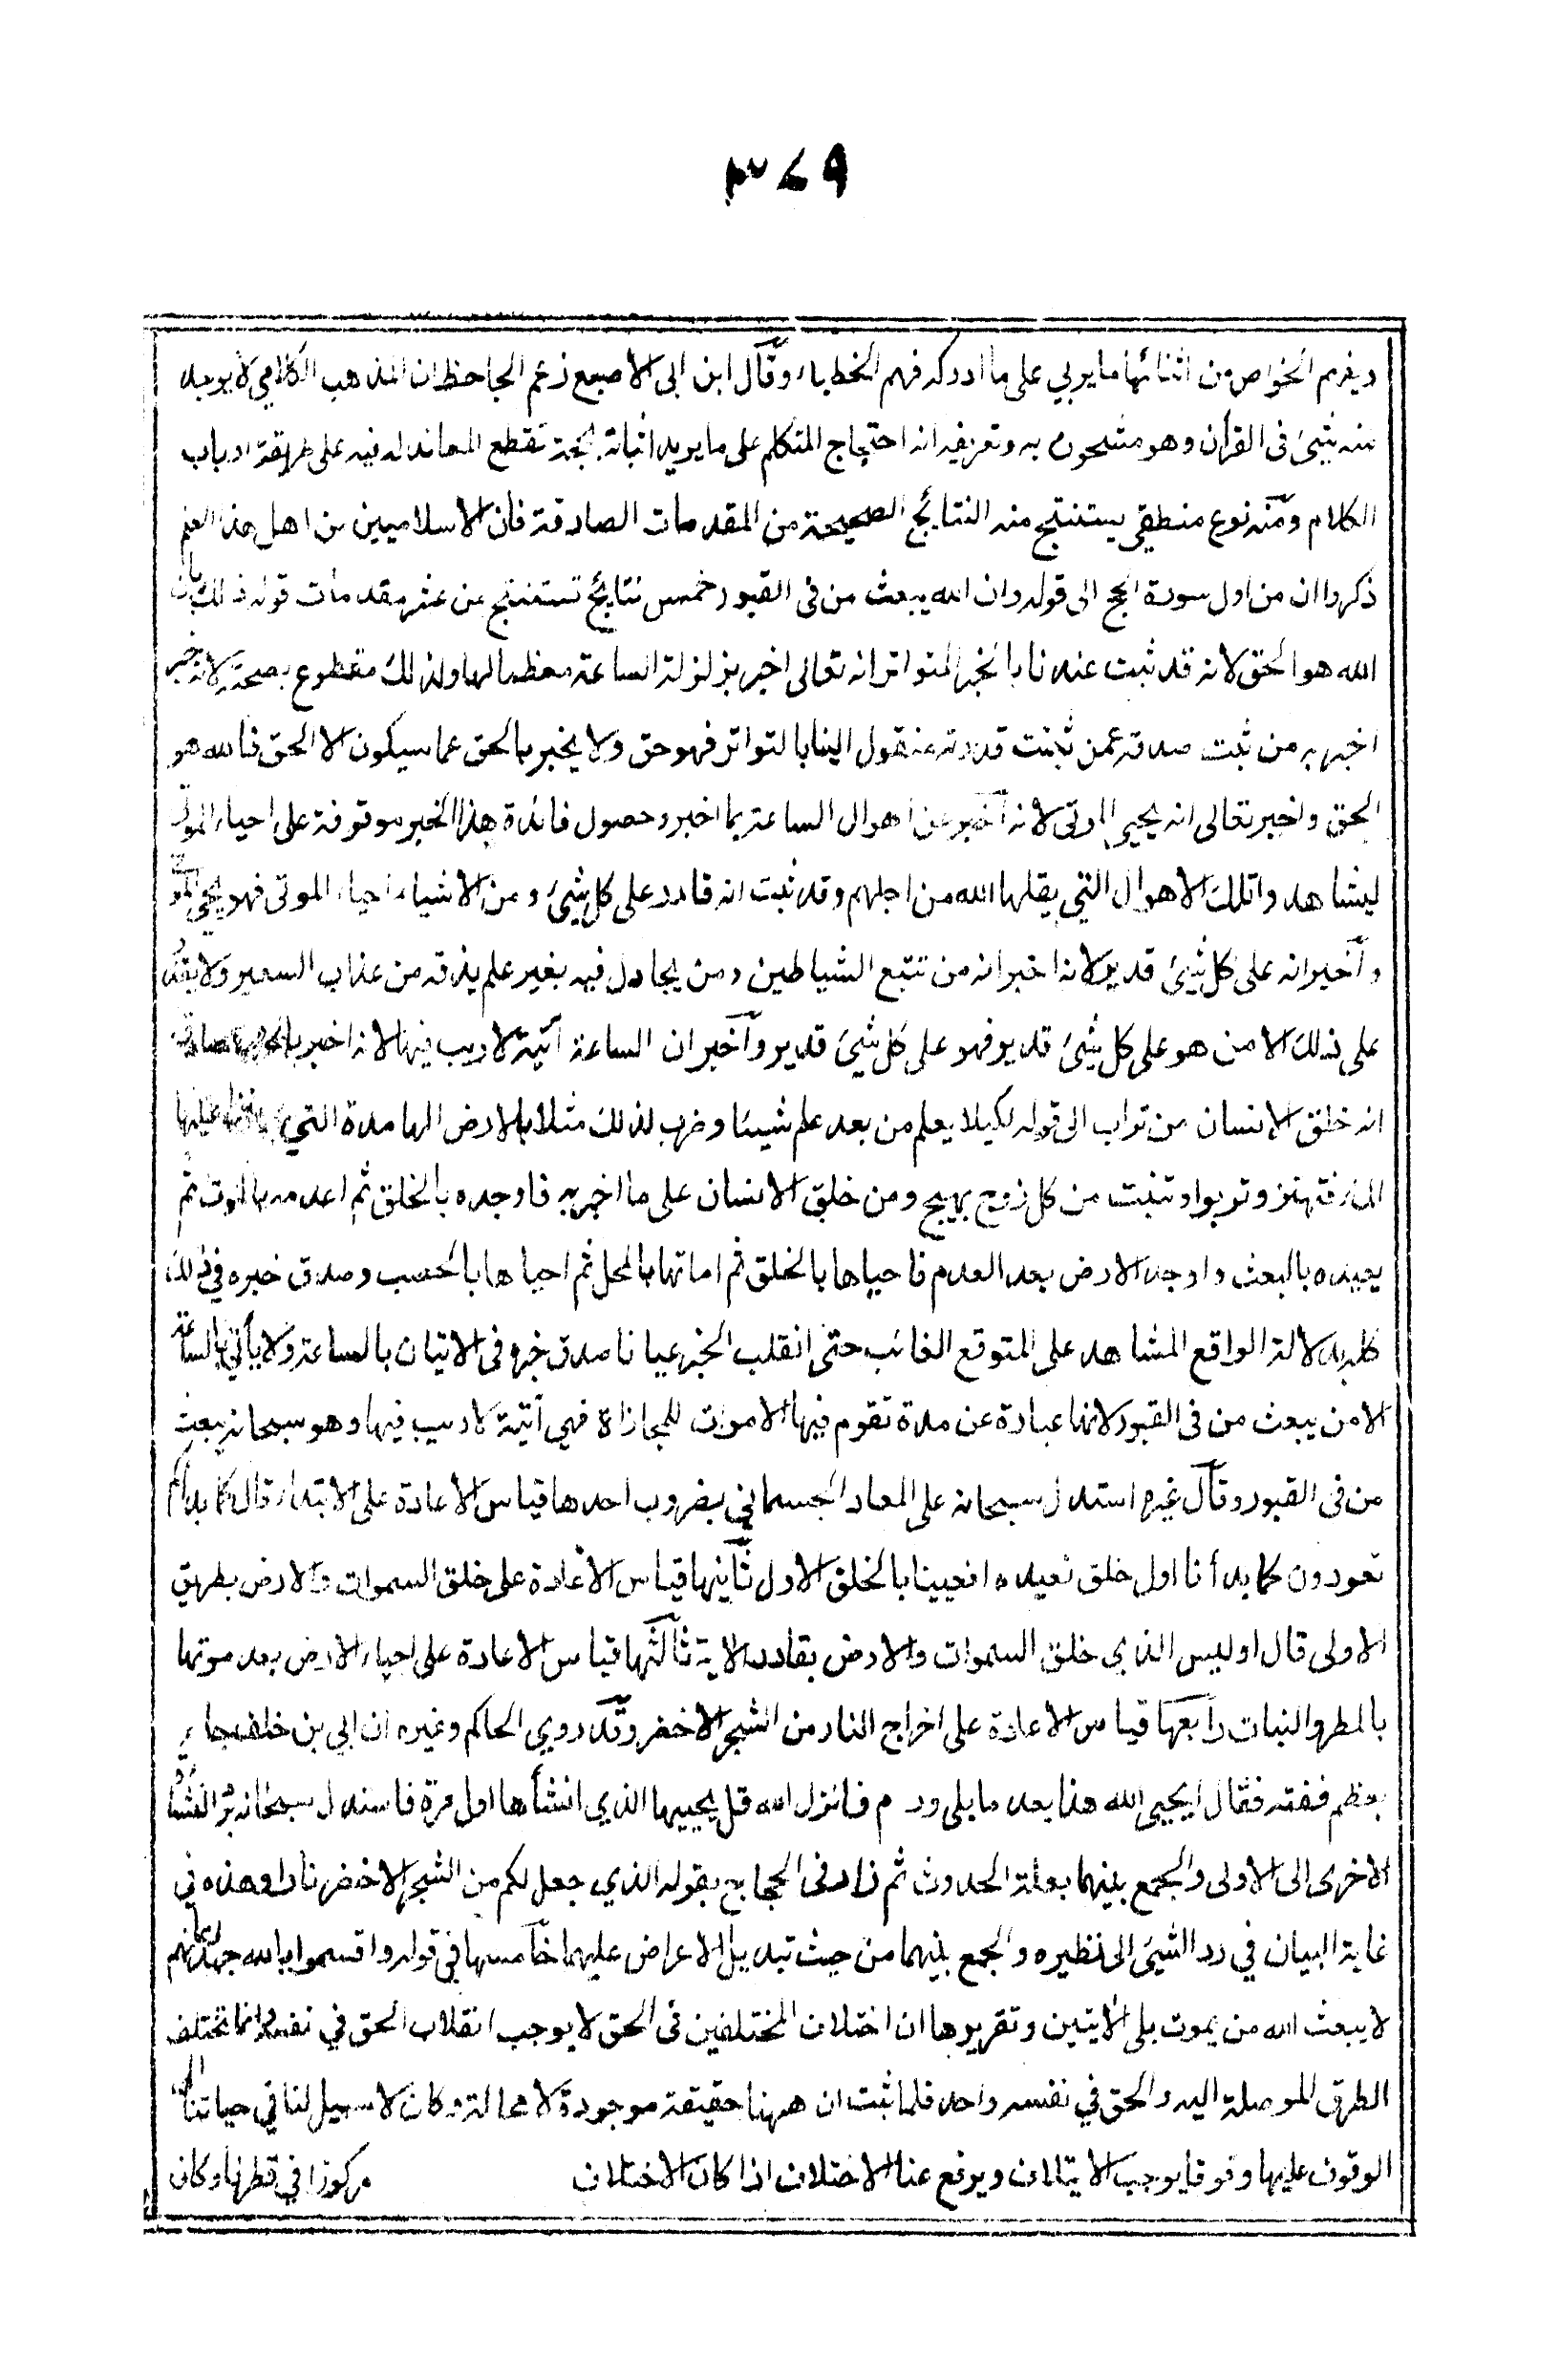 ۳۷۹
ويفهم الخواص من اثنائها ما يربي على ما ادركه فهم الخطباء وقال ابن ابى الاصبع زعم الجاحظ ان المذهب الكلامي لا يوجد
منه شيئ فى القرأن وهو مشحون به وتعريفه انه احتجاج المتكلم على ما يريد اثباته بحجة تقطع المعاند له فيه على طريقة ارباب
الكلام ومنه نوع منطقى يستنتج منه النتائج الصحيحة من المقدمات الصادقة فان الاسلاميين من اهل هذا العلم
ذكروا ان من اول سورة الحج الى قوله وان الله يبعث من فى القبور خمس نتائج تستنتج من عشر مقدمات قوله ذلك بان
الله هو الحق لانه قد ثبت عندنا بالخبر المتواتر انه تعالى اخبر بزلزلة الساعة معظما لها وذلك مقطوع بصحته لانه خبر
اخبر به من ثبت صدقه عمن ثبتت قدرته منقول الينا بالتواتر فهو حق ولا يخبر بالحق عما سيكون الا الحق فالله هو
الحق واخبر تعالى انه يحيي الموتى لانه أخبر عن اهوال الساعة بما اخبر وحصول فائدة هذا الخبر موقوفة على احياء الموتى
ليشاهدوا تلك الاهوال التي يقلها الله من اجلهم وقد ثبت انه قادر على كل شيئ ومن الاشياء احياء الموتى فهو يحي الموتى
وأخبر انه على كل شيئ قدير لانه اخبر انه من تتبع الشياطين ومن يجادل فيه بغير علم يذقه من عذاب السعير ولا يقدر
على ذلك الا من هو على كل شيئ قدير فهو على كل شيئ قدير وأخبر ان الساعة آتية لا ريب فيها لانه اخبر بالخبر الصادق
انه خلق الانسان من تراب الى قوله لكيلا يعلم من بعد علم شيئا وضرب لذلك مثلا بالارض الهامدة التي ينزل عليها
الماء فتهتز وتربوا وتنبت من كل زوج بهيج ومن خلق الانسان على ما اخبر به فاوجده بالخلق ثم اعدمه بالموت ثم
يعيده بالبعث واوجد الارض بعد العدم فاحياها بالخلق ثم اماتها بالمحل ثم احياها بالخصب وصدق خبره في ذلك
كله بدلالة الواقع المشاهد على المتوقع الغائب حتى انقلب الخبر عيانا صدق خبره فى الاتيان بالساعة ولا يأتي بالساعة
الا من يبعث من فى القبور لانها عبارة عن مدة تقوم فيها الاموات للمجازاة فهي آتية لا ريب فيها وهو سبحانه يبعث
من فى القبور وقال غيره استدل سبحانه على المعاد الجسماني بضروب احدها قياس الاعادة على الابتداء قال كما بدأكم
تعودون كما بدأنا اول خلق نعيده افعيينا بالخلق الاول ثانيها قياس الاعادة على خلق السموات والارض بطريق
الاولى قال اوليس الذي خلق السموات والارض بقادر الاية ثالثها قياس الاعادة على احياء الارض بعد موتها
بالمطر والنبات رابعها قياس الاعادة على اخراج النار من الشجر الاخضر وقد روي الحاكم وغيره ان ابي بن خلف جاء
بعظم ففته فقال أيحيى الله هذا بعد ما بلى ورم فانزل الله قل يحييها الذي انشأها اول مرة فاستدل سبحانه برد النشأة
الاخرى الى الاولى والجمع بينهما بعلة الحدوث ثم زاد فى الحجاج بقوله الذي جعل لكم من الشجر الاخضر نارا وهذه في
غاية البيان في رد الشيئ الى نظيره والجمع بينهما من حيث تبديل الاعراض عليهما خامسها في قوله واقسموا بالله جهد ايمانهم
لا يبعث الله من يموت بلى الأيتين وتقريرها ان اختلاف المختلفين فى الحق لا يوجب انقلاب الحق في نفسه وانما تختلف
الطرق الموصلة اليه والحق في نفسه واحد فلما ثبت ان ههنا حقيقة موجودة لا محالة وكان لا سبيل لنا في حياتنا الى
الوقوف عليها وقوفا يوجب الايتلاف ويرفع عنا الاختلاف اذا كان الاختلاف مركوزا في فطرنا وكان